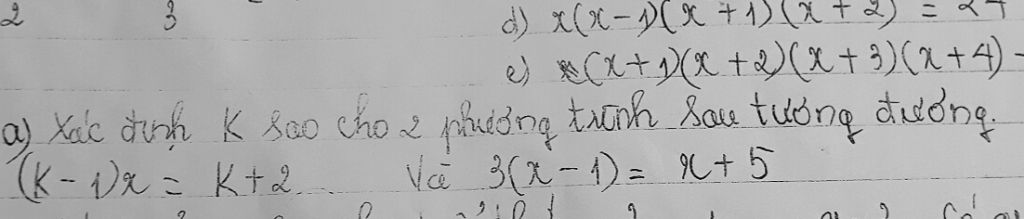 2 3 d) x(x-1)(x+1)(x+2) = 24
e) (x+1)(x+2)(x+3)(x+4) -
a) Xác định K sao cho 2 phương trình sau tương đương.
(K-1)x = K+2 Và 3(x-1) = x+5